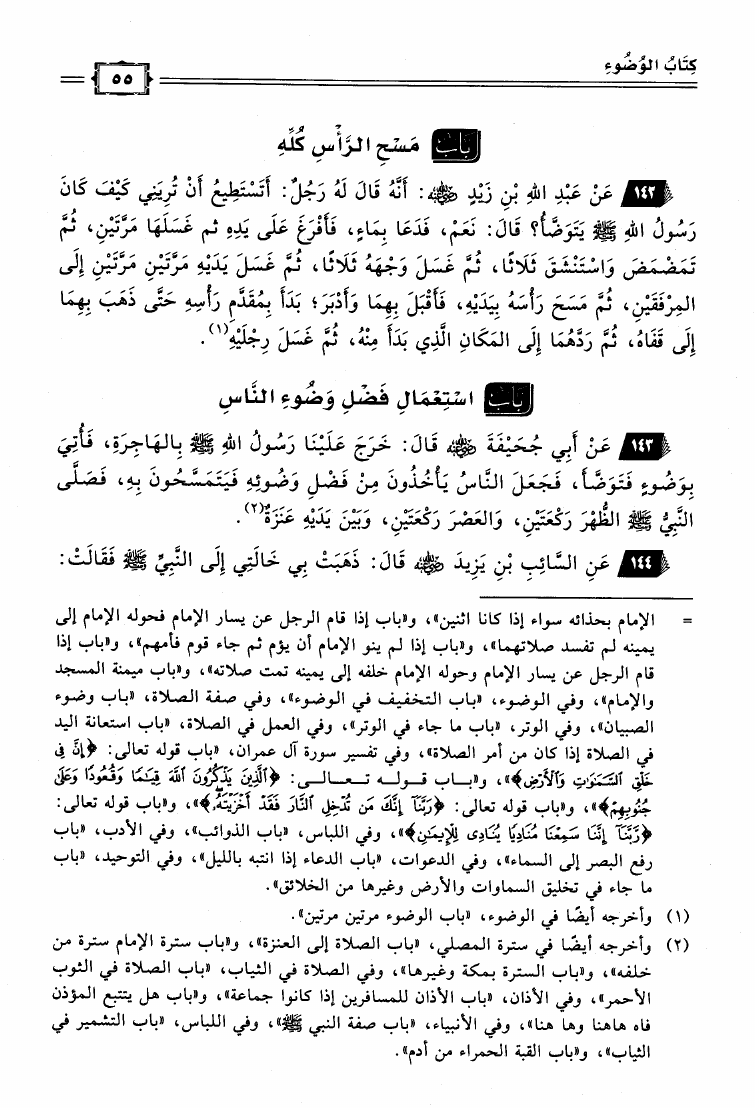 كِتَابُ الوُضُوءِ
٥٥
بَابُ مَسْحِ الرَّأْسِ كُلِّهِ
١٤٢ عَنْ عَبْدِ اللهِ بْنِ زَيْدٍ رضي الله عنه: أَنَّهُ قَالَ لَهُ رَجُلٌ: أَتَسْتَطِيعُ أَنْ تُرِيَنِي كَيْفَ كَانَ
رَسُولُ اللهِ ﷺ يَتَوَضَّأُ؟ قَالَ: نَعَمْ، فَدَعَا بِمَاءٍ، فَأَفْرَغَ عَلَى يَدِهِ ثم غَسَلَهَا مَرَّتَيْنِ، ثُمَّ
تَمَضْمَضَ وَاسْتَنْشَقَ ثَلَاثًا، ثُمَّ غَسَلَ وَجْهَهُ ثَلَاثًا، ثُمَّ غَسَلَ يَدَيْهِ مَرَّتَيْنِ مَرَّتَيْنِ إِلَى
المِرْفَقَيْنِ، ثُمَّ مَسَحَ رَأْسَهُ بِيَدَيْهِ، فَأَقْبَلَ بِهِمَا وَأَدْبَرَ؛ بَدَأَ بِمُقَدَّمِ رَأْسِهِ حَتَّى ذَهَبَ بِهِمَا
إِلَى قَفَاهُ، ثُمَّ رَدَّهُمَا إِلَى المَكَانِ الَّذِي بَدَأَ مِنْهُ، ثُمَّ غَسَلَ رِجْلَيْهِ(١).
بَابُ اسْتِعْمَالِ فَضْلِ وَضُوءِ النَّاسِ
١٤٣ عَنْ أَبِي جُحَيْفَةَ رضي الله عنه قَالَ: خَرَجَ عَلَيْنَا رَسُولُ اللهِ ﷺ بِالهَاجِرَةِ، فَأُتِيَ
بِوَضُوءٍ فَتَوَضَّأَ، فَجَعَلَ النَّاسُ يَأْخُذُونَ مِنْ فَضْلِ وَضُوئِهِ فَيَتَمَسَّحُونَ بِهِ، فَصَلَّى
النَّبِيُّ ﷺ الظُّهْرَ رَكْعَتَيْنِ، وَالعَصْرَ رَكْعَتَيْنِ، وَبَيْنَ يَدَيْهِ عَنَزَةٌ(٢).
١٤٤ عَنِ السَّائِبِ بْنِ يَزِيدَ رضي الله عنه قَالَ: ذَهَبَتْ بِي خَالَتِي إِلَى النَّبِيِّ ﷺ فَقَالَتْ:
= الإمام بحذائه سواء إذا كانا اثنين»، و«باب إذا قام الرجل عن يسار الإمام فحوله الإمام إلى
يمينه لم تفسد صلاتهما»، و«باب إذا لم ينو الإمام أن يؤم ثم جاء قوم فأمهم»، و«باب إذا
قام الرجل عن يسار الإمام وحوله الإمام خلفه إلى يمينه تمت صلاته»، و«باب ميمنة المسجد
والإمام»، وفي الوضوء، «باب التخفيف في الوضوء»، وفي صفة الصلاة، «باب وضوء
الصبيان»، وفي الوتر، «باب ما جاء في الوتر»، وفي العمل في الصلاة، «باب استعانة اليد
في الصلاة إذا كان من أمر الصلاة»، وفي تفسير سورة آل عمران، «باب قوله تعالى: ﴿إِنَّ فِى
خَلْقِ ٱلسَّمَٰوَٰتِ وَٱلْأَرْضِ﴾»، و«باب قوله تعالى: ﴿ٱلَّذِينَ يَذْكُرُونَ ٱللَّهَ قِيَٰمًا وَقُعُودًا وَعَلَىٰ
جُنُوبِهِمْ﴾»، و«باب قوله تعالى: ﴿رَبَّنَآ إِنَّكَ مَن تُدْخِلِ ٱلنَّارَ فَقَدْ أَخْزَيْتَهُۥ﴾»، و«باب قوله تعالى:
﴿رَّبَّنَآ إِنَّنَا سَمِعْنَا مُنَادِيًا يُنَادِى لِلْإِيمَٰنِ﴾»، وفي اللباس، «باب الذوائب»، وفي الأدب، «باب
رفع البصر إلى السماء»، وفي الدعوات، «باب الدعاء إذا انتبه بالليل»، وفي التوحيد، «باب
ما جاء في تخليق السماوات والأرض وغيرها من الخلائق».
(١) وأخرجه أيضًا في الوضوء، «باب الوضوء مرتين مرتين».
(٢) وأخرجه أيضًا في سترة المصلي، «باب الصلاة إلى العنزة»، و«باب سترة الإمام سترة من
خلفه»، و«باب السترة بمكة وغيرها»، وفي الصلاة في الثياب، «باب الصلاة في الثوب
الأحمر»، وفي الأذان، «باب الأذان للمسافرين إذا كانوا جماعة»، و«باب هل يتتبع المؤذن
فاه هاهنا وها هنا»، وفي الأنبياء، «باب صفة النبي ﷺ»، وفي اللباس، «باب التشمير في
الثياب»، و«باب القبة الحمراء من أدم».